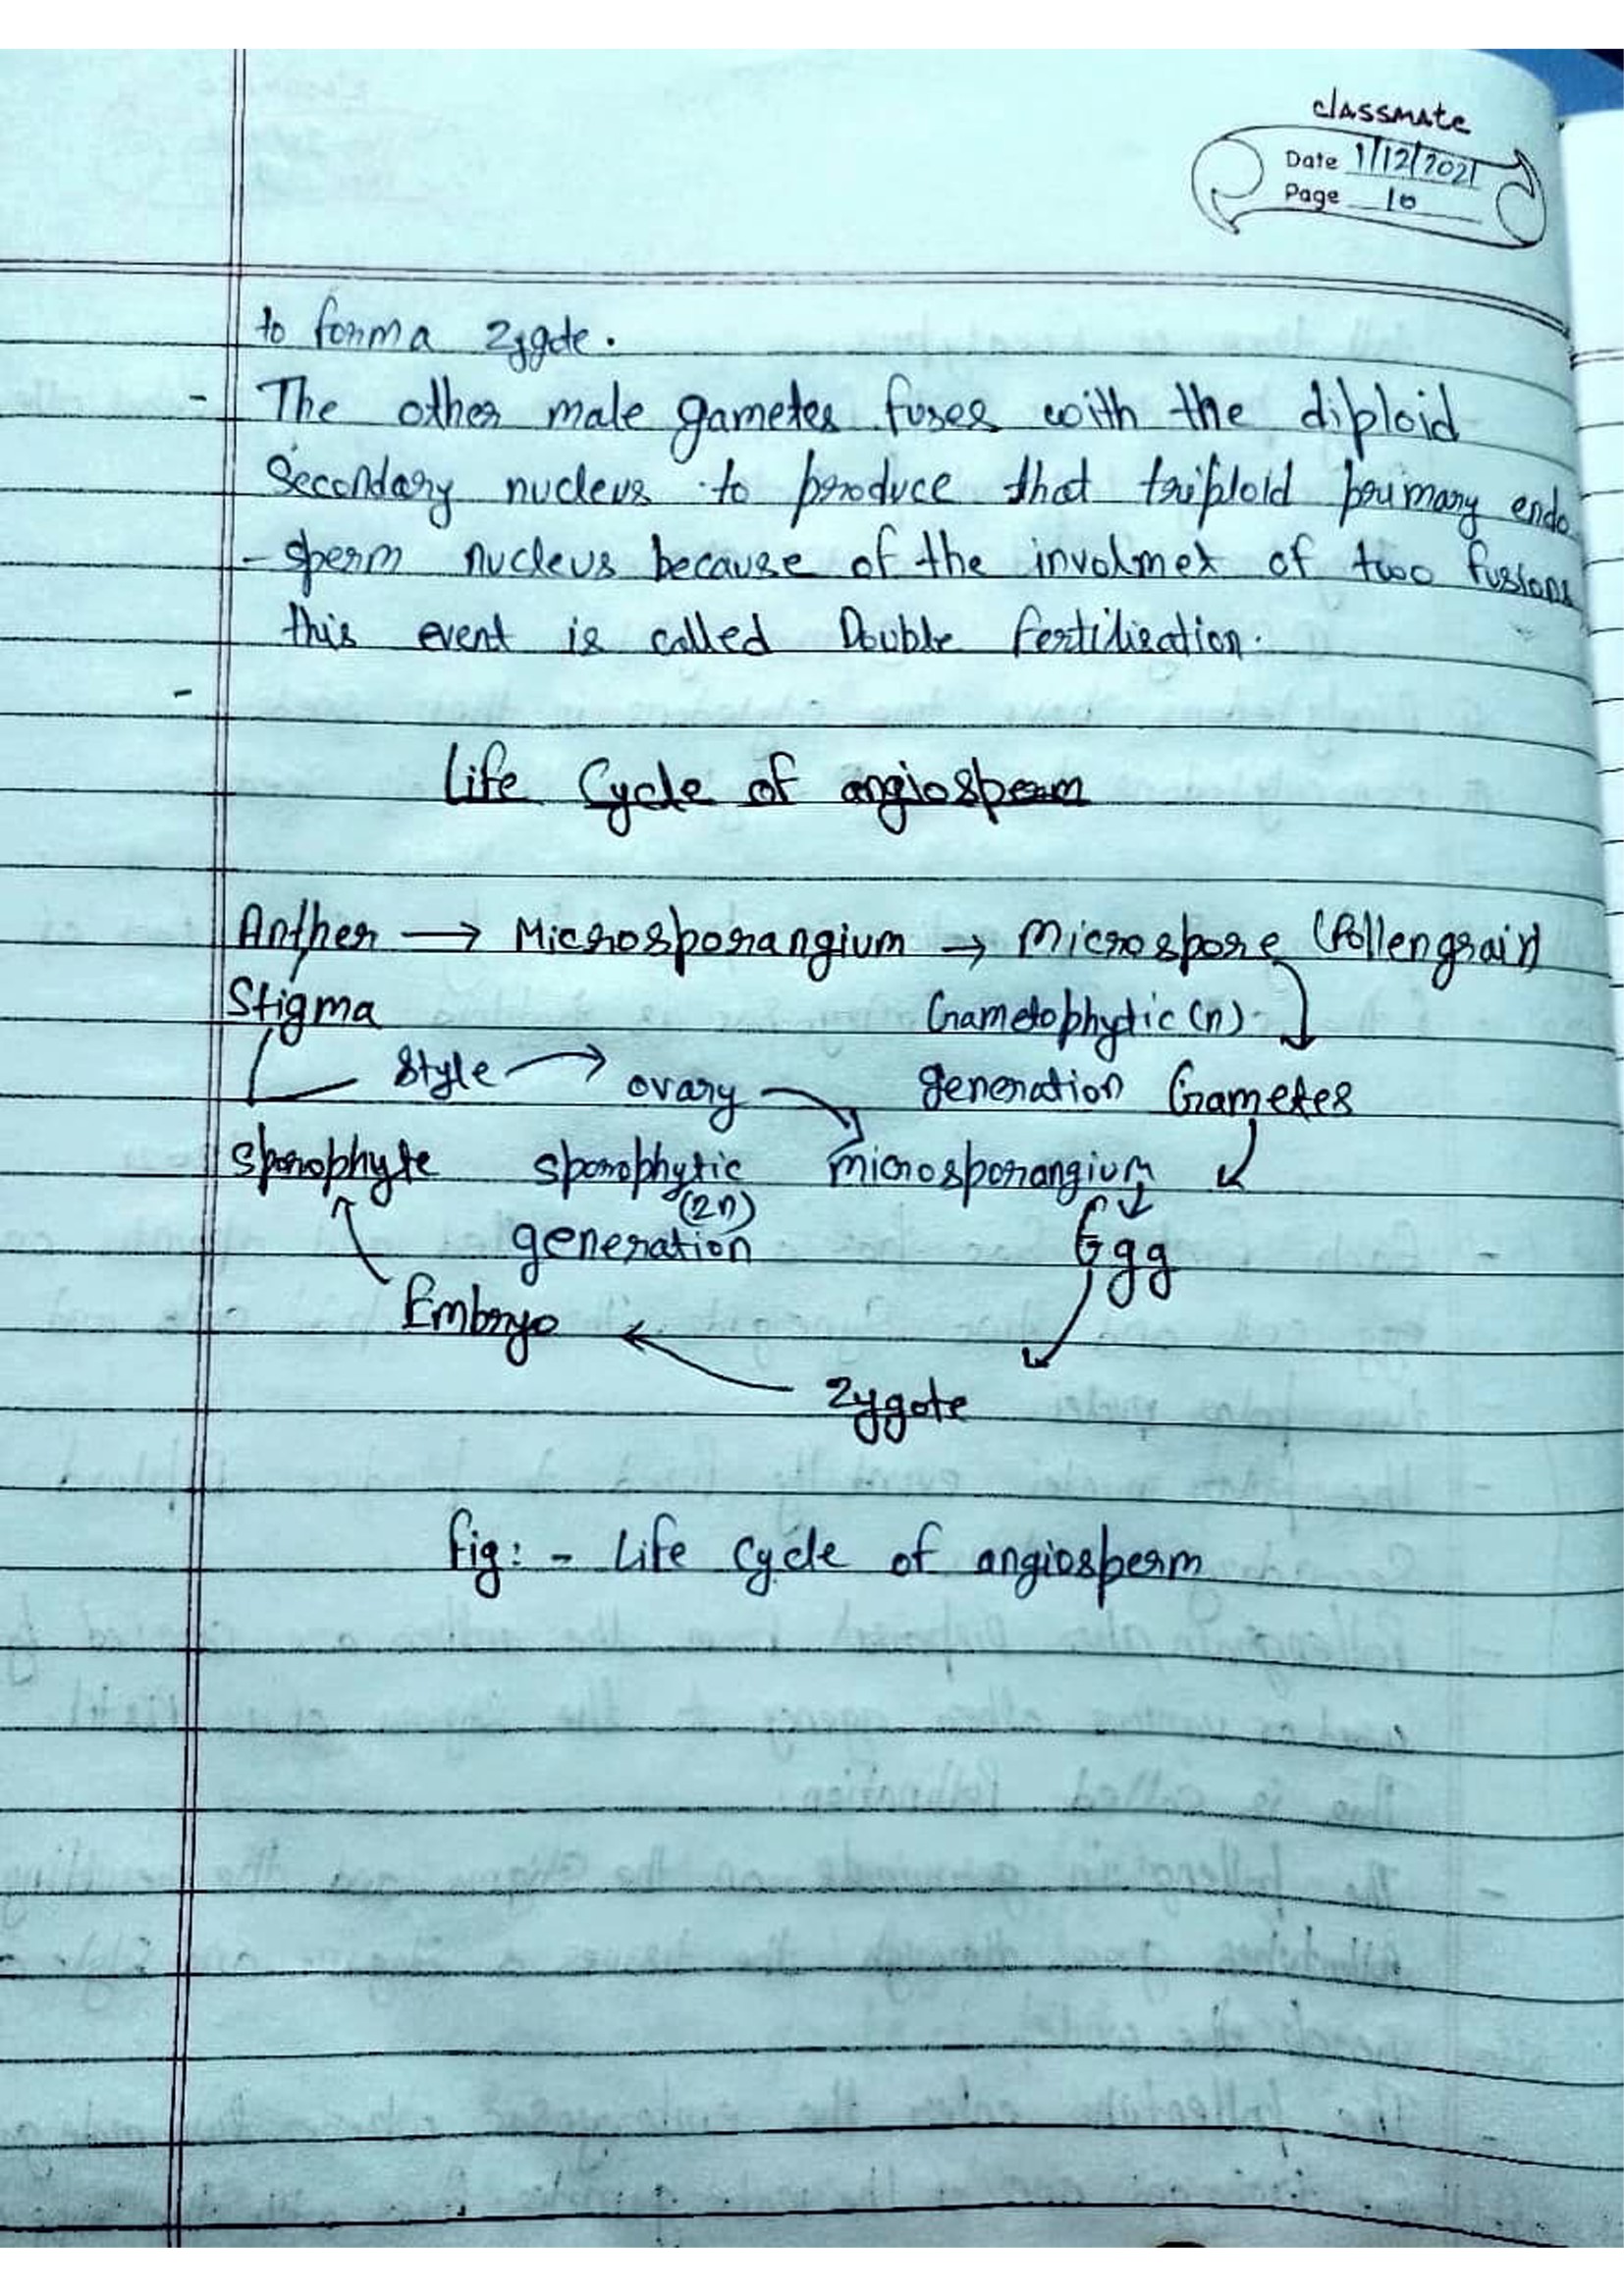 classmate
Date 1/12/2021
Page 10
to form a Zygote.
- The other male gametes fuses with the diploid
Secondary nucleus to produce that triploid primary endo
- sperm nucleus because of the involmet of two fusions
this event is called Double Fertilisation.
-
Life Cycle of angiosperm
Anther → Microsporangium → Microspore (Pollengrain)
Stigma Gametophytic (n)
Style → ovary generation Gametes
Sporophyte sporophytic microsporangium
(2n)
generation Egg
Embryo
Zygote
fig: - Life Cycle of angiosperm